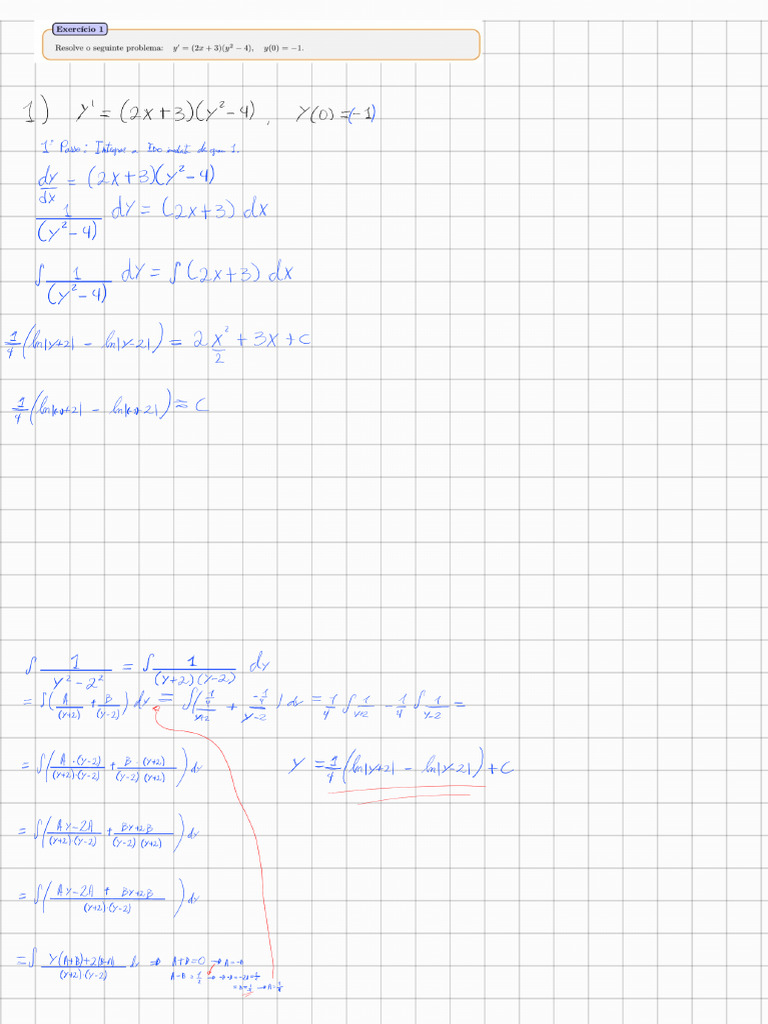 Exercício 1
Resolve o seguinte problema: y' = (2x + 3)(y² − 4), y(0) = −1.
1) y' = (2x+3)(y²-4), y(0) = (-1)
1º Passo: Integrar a de
dy/dx = (2x+3)(y²-4)
1/(y²-4) dy = (2x+3) dx
∫ 1/(y²-4) dy = ∫(2x+3) dx
1/4 (ln|y+2| - ln|y-2|) = 2 x²/2 + 3x + c
∫ 1/(y²-2²) = ∫ 1/((y+2)(y-2)) dy
= ∫(A/(y+2) + B/(y-2)) dy = ∫((1/4)/(y+2) + (-1/4)/(y-2)) dy = 1/4 ∫ 1/(y+2) - 1/4 ∫ 1/(y-2) =
= ∫(A·(y-2)/((y+2)·(y-2)) + B·(y+2)/((y-2)(y+2))) dy
y = 1/4 (ln|y+2| - ln|y-2|) + c
= ∫(Ay-2A/((y+2)·(y-2)) + By+2B/((y-2)·(y+2))) dy
= ∫(Ay-2A + By+2B/((y+2)·(y-2))) dy
= ∫ y(A+B)+2(B-A)/((y+2)·(y-2)) dy ⇒ A+B=0 → A=-B